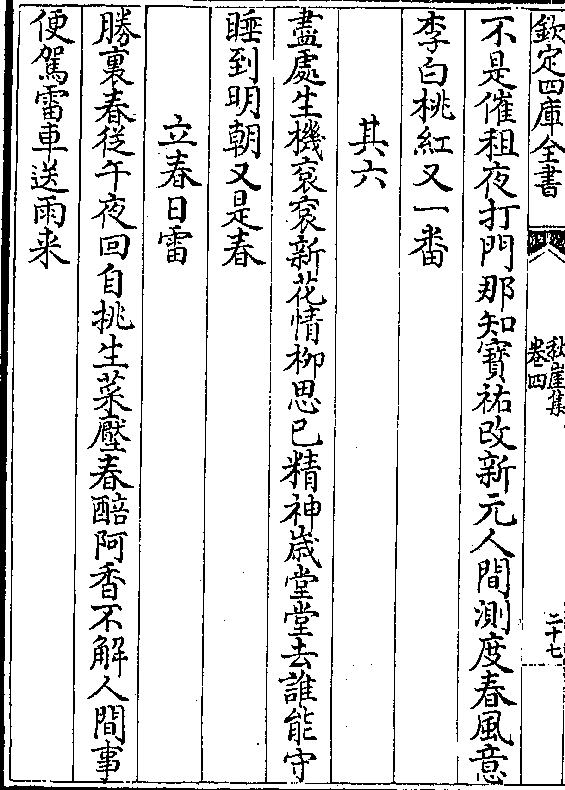 欽定四庫全書
秋崖集
卷四
二十七
不是催租夜打門那知寳祐改新元人間測度春風意
李白桃紅又一番
其六
盡處生機衮衮新花情柳思已精神歳堂堂去誰能守
睡到明朝又是春
立春日雷
勝裏春從午夜回自挑生菜壓春醅阿香不解人間事
便駕雷車送雨来